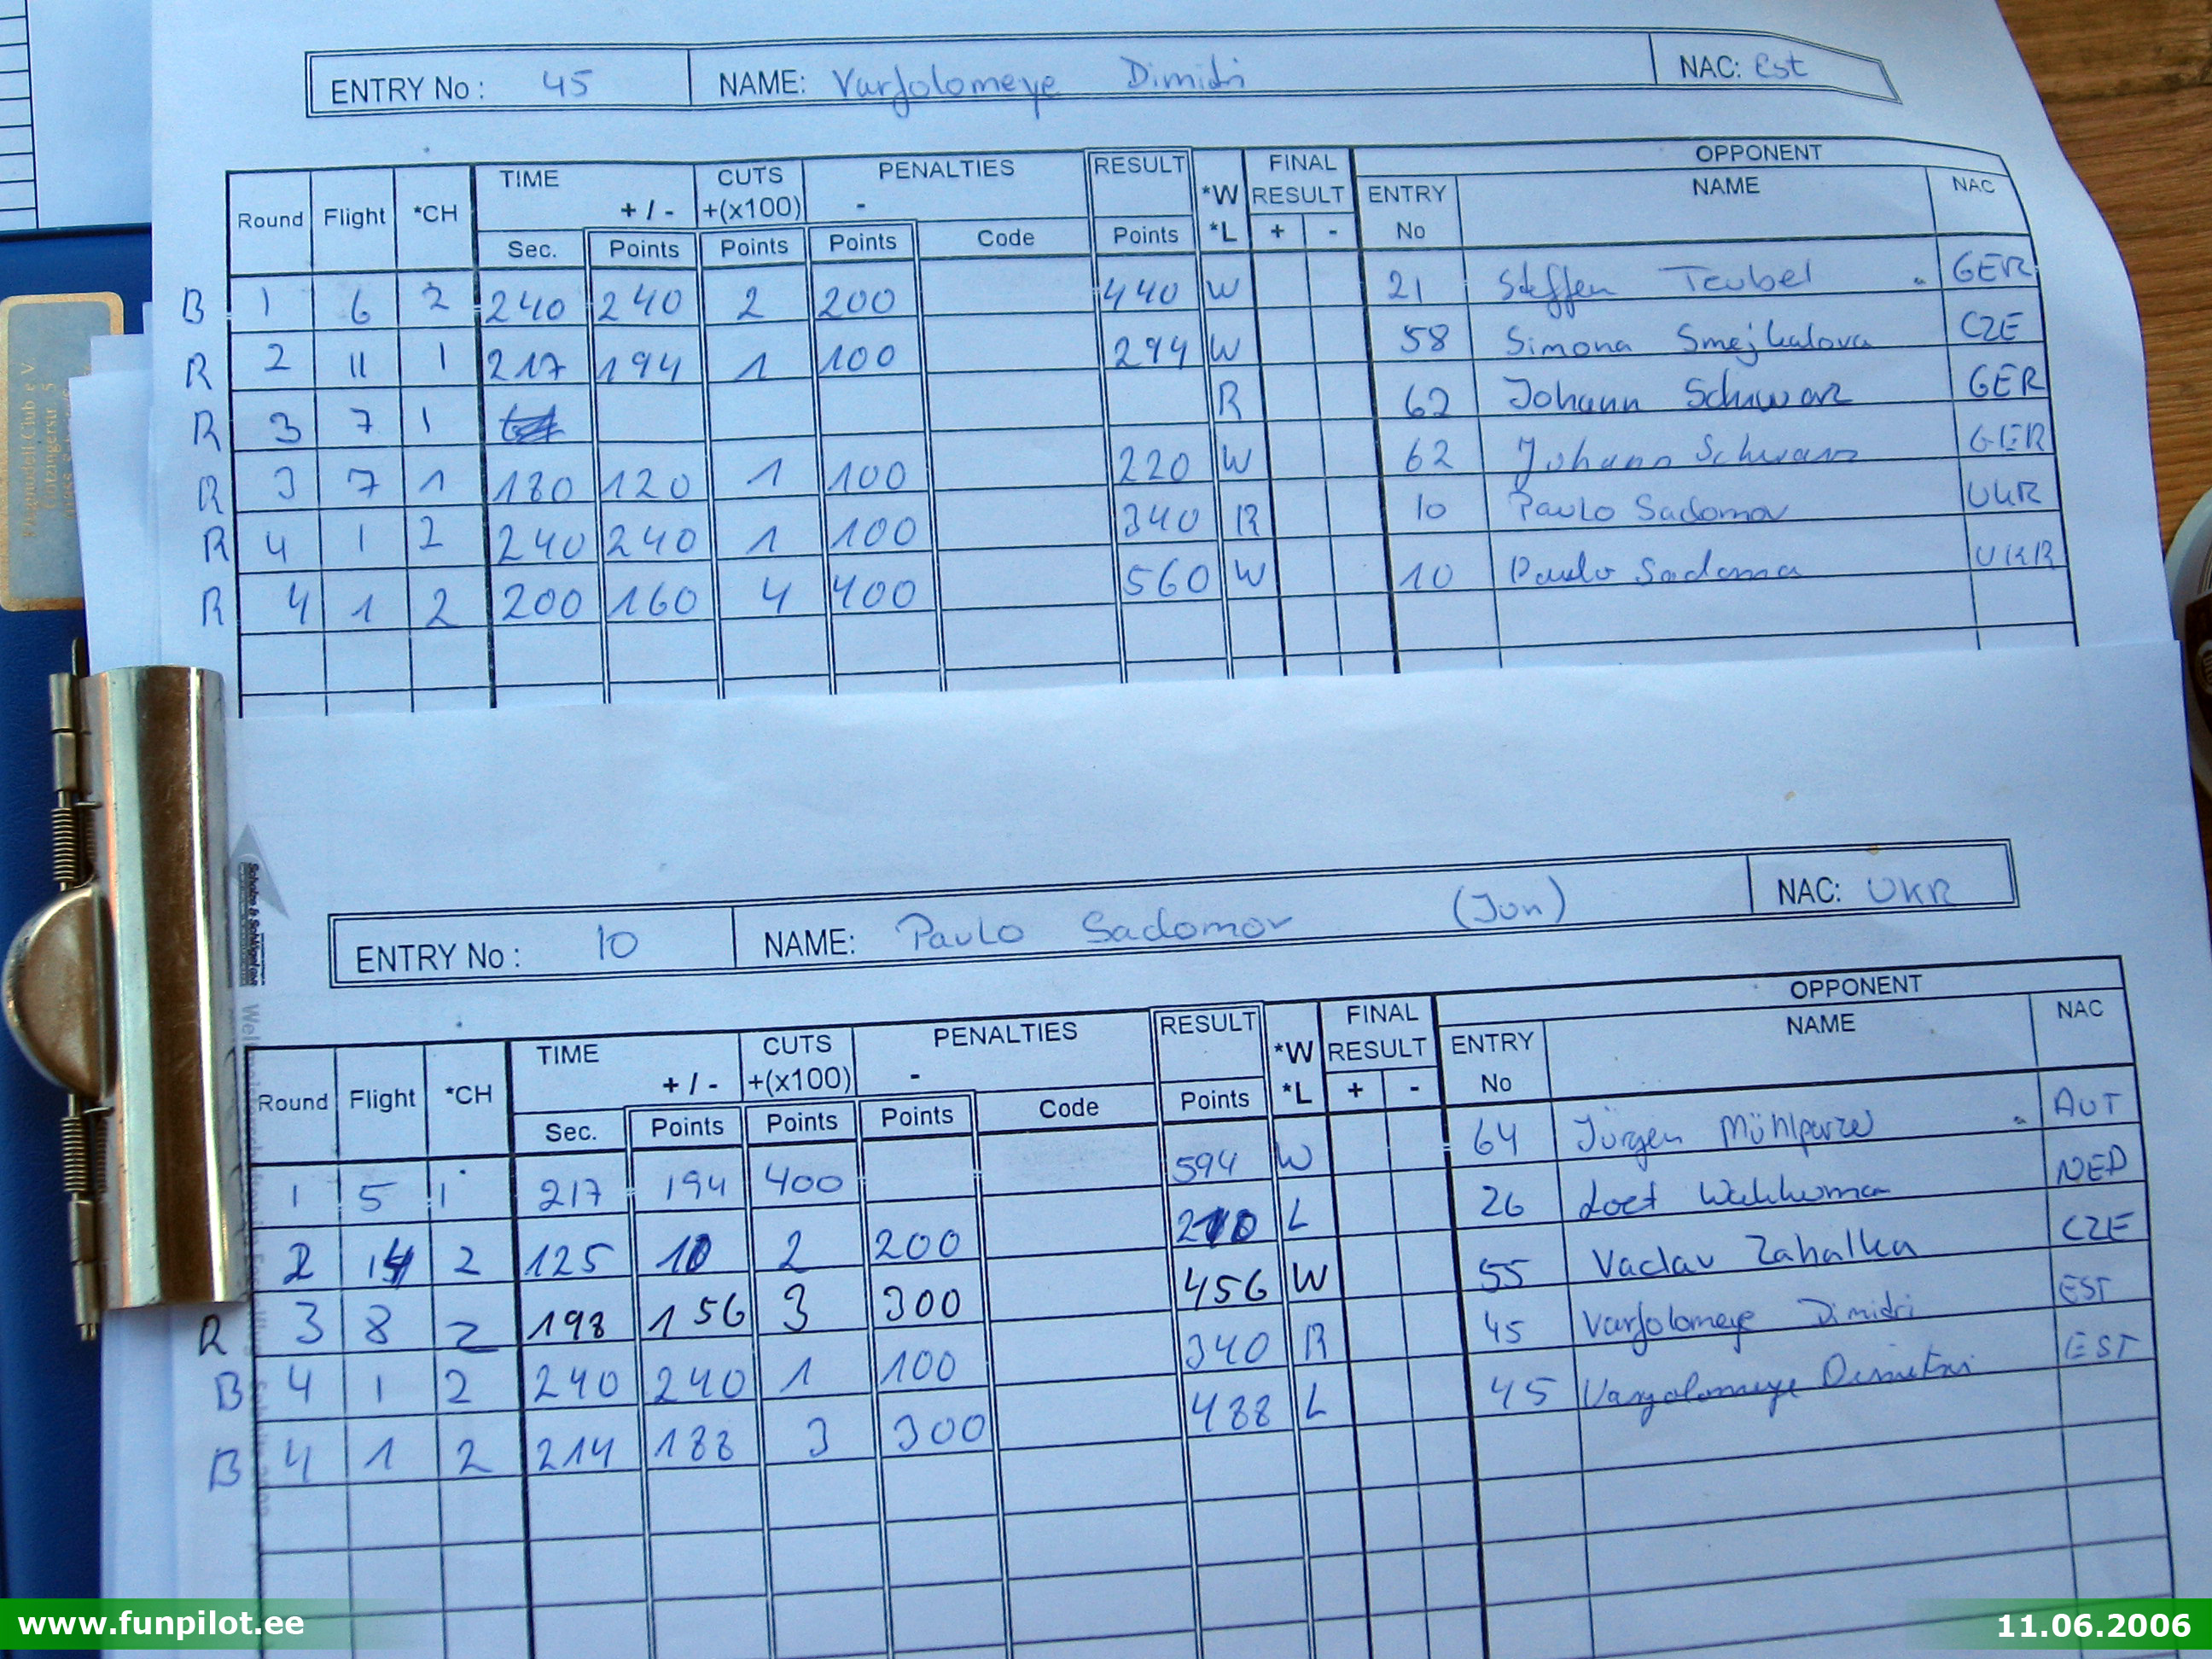 ENTRY No : 45 NAME: Varfolomeye Dimidri NAC: est
OPPONENT
TIME CUTS PENALTIES RESULT FINAL NAME NAC
Round Flight *CH + / - +(x100) - *W RESULT ENTRY
Sec. Points Points Points Code Points *L + - No
B 1 6 2 240 240 2 200 440 W 21 Steffen Teubel GER
R 2 11 1 217 194 1 100 294 W 58 Simona Smejkalova CZE
R 3 7 1 R 62 Johann Schwarz GER
R 3 7 1 180 120 1 100 220 W 62 Johann Schwarz GER
R 4 1 2 240 240 1 100 340 R 10 Paulo Sadomov UKR
R 4 1 2 200 160 4 400 560 W 10 Paulo Sadoma UKR
ENTRY No : 10 NAME: Paulo Sadomov (Jun) NAC: UKR
OPPONENT
TIME CUTS PENALTIES RESULT FINAL NAME NAC
Round Flight *CH + / - +(x100) - *W RESULT ENTRY
Sec. Points Points Points Code Points *L + - No
1 5 1 217 194 400 594 W 64 Jürgen AUT
2 14 2 125 10 2 200 210 L 26 Loet NED
R 3 8 2 198 156 3 300 456 W 55 Vaclav Zahalka CZE
B 4 1 2 240 240 1 100 340 R 45 Varfolomeye Dimidri EST
B 4 1 2 214 188 3 300 488 L 45 EST
www.funpilot.ee
11.06.2006